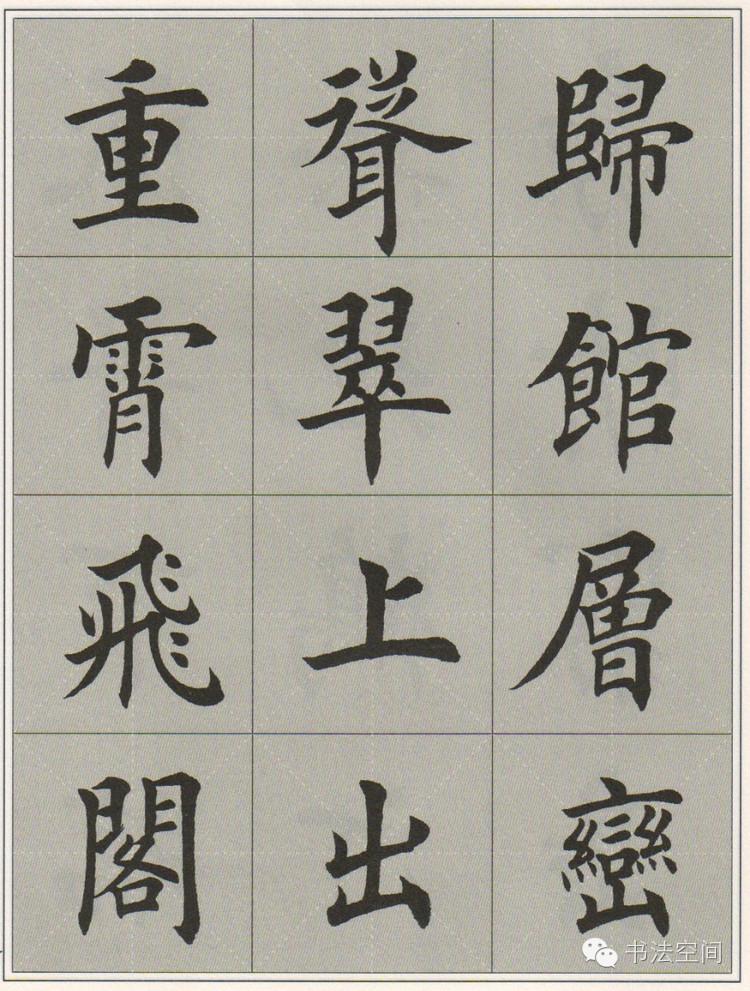 歸館層巒
聳翠上出
重霄飛閣
书法空间